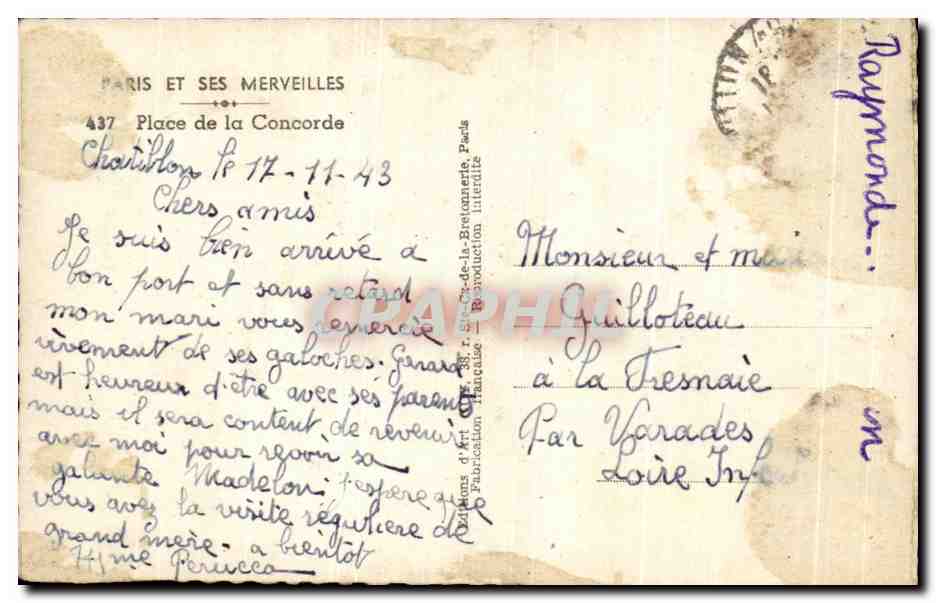 PARIS ET SES MERVEILLES
437 Place de la Concorde
le 17-11-43
Chers amis
Je suis bien arrivé a
bon port et sans retard
mon mari vous remercie
vivement de ses galoches. Gérard
est heureux d'être avec ses parents
mais il sera content de revenir
avec moi pour revoir sa
galante Madelon. J'espère que
vous avez la visite régulière de
grand mère - a bientôt
Perucca
Editions d'Art 38, r. Ste-Cx-de-la-Bretonnerie, Paris
Fabrication française — Reproduction interdite
CRAPHII
Monsieur et
Guilloteau
à la Fresnaie
Par Varades
Loire Inf
Raymonde..
in